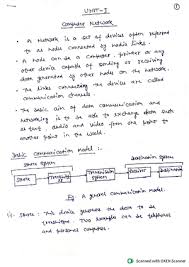 UNIT-I
①
Computer Network
• A Network is a set of devices often referred
to as nodes connected by media links.
• A node can be a computer, printer or any
other device capable of sending or receiving
data generated by other nodes on the network.
• The links connecting the devices are called
communication channels.
• The basic aim of data communication and
networking is to be able to exchange data such
as text, audio and video from one point to
another point in the world.
Basic Communication Model :-
Source System
Destination System
Source
Fig: A general communication Model.
(i). Source : This device generates the data to be
transmitted. Two examples can be telephones
and personal computers.
Scanned with OKEN Scanner